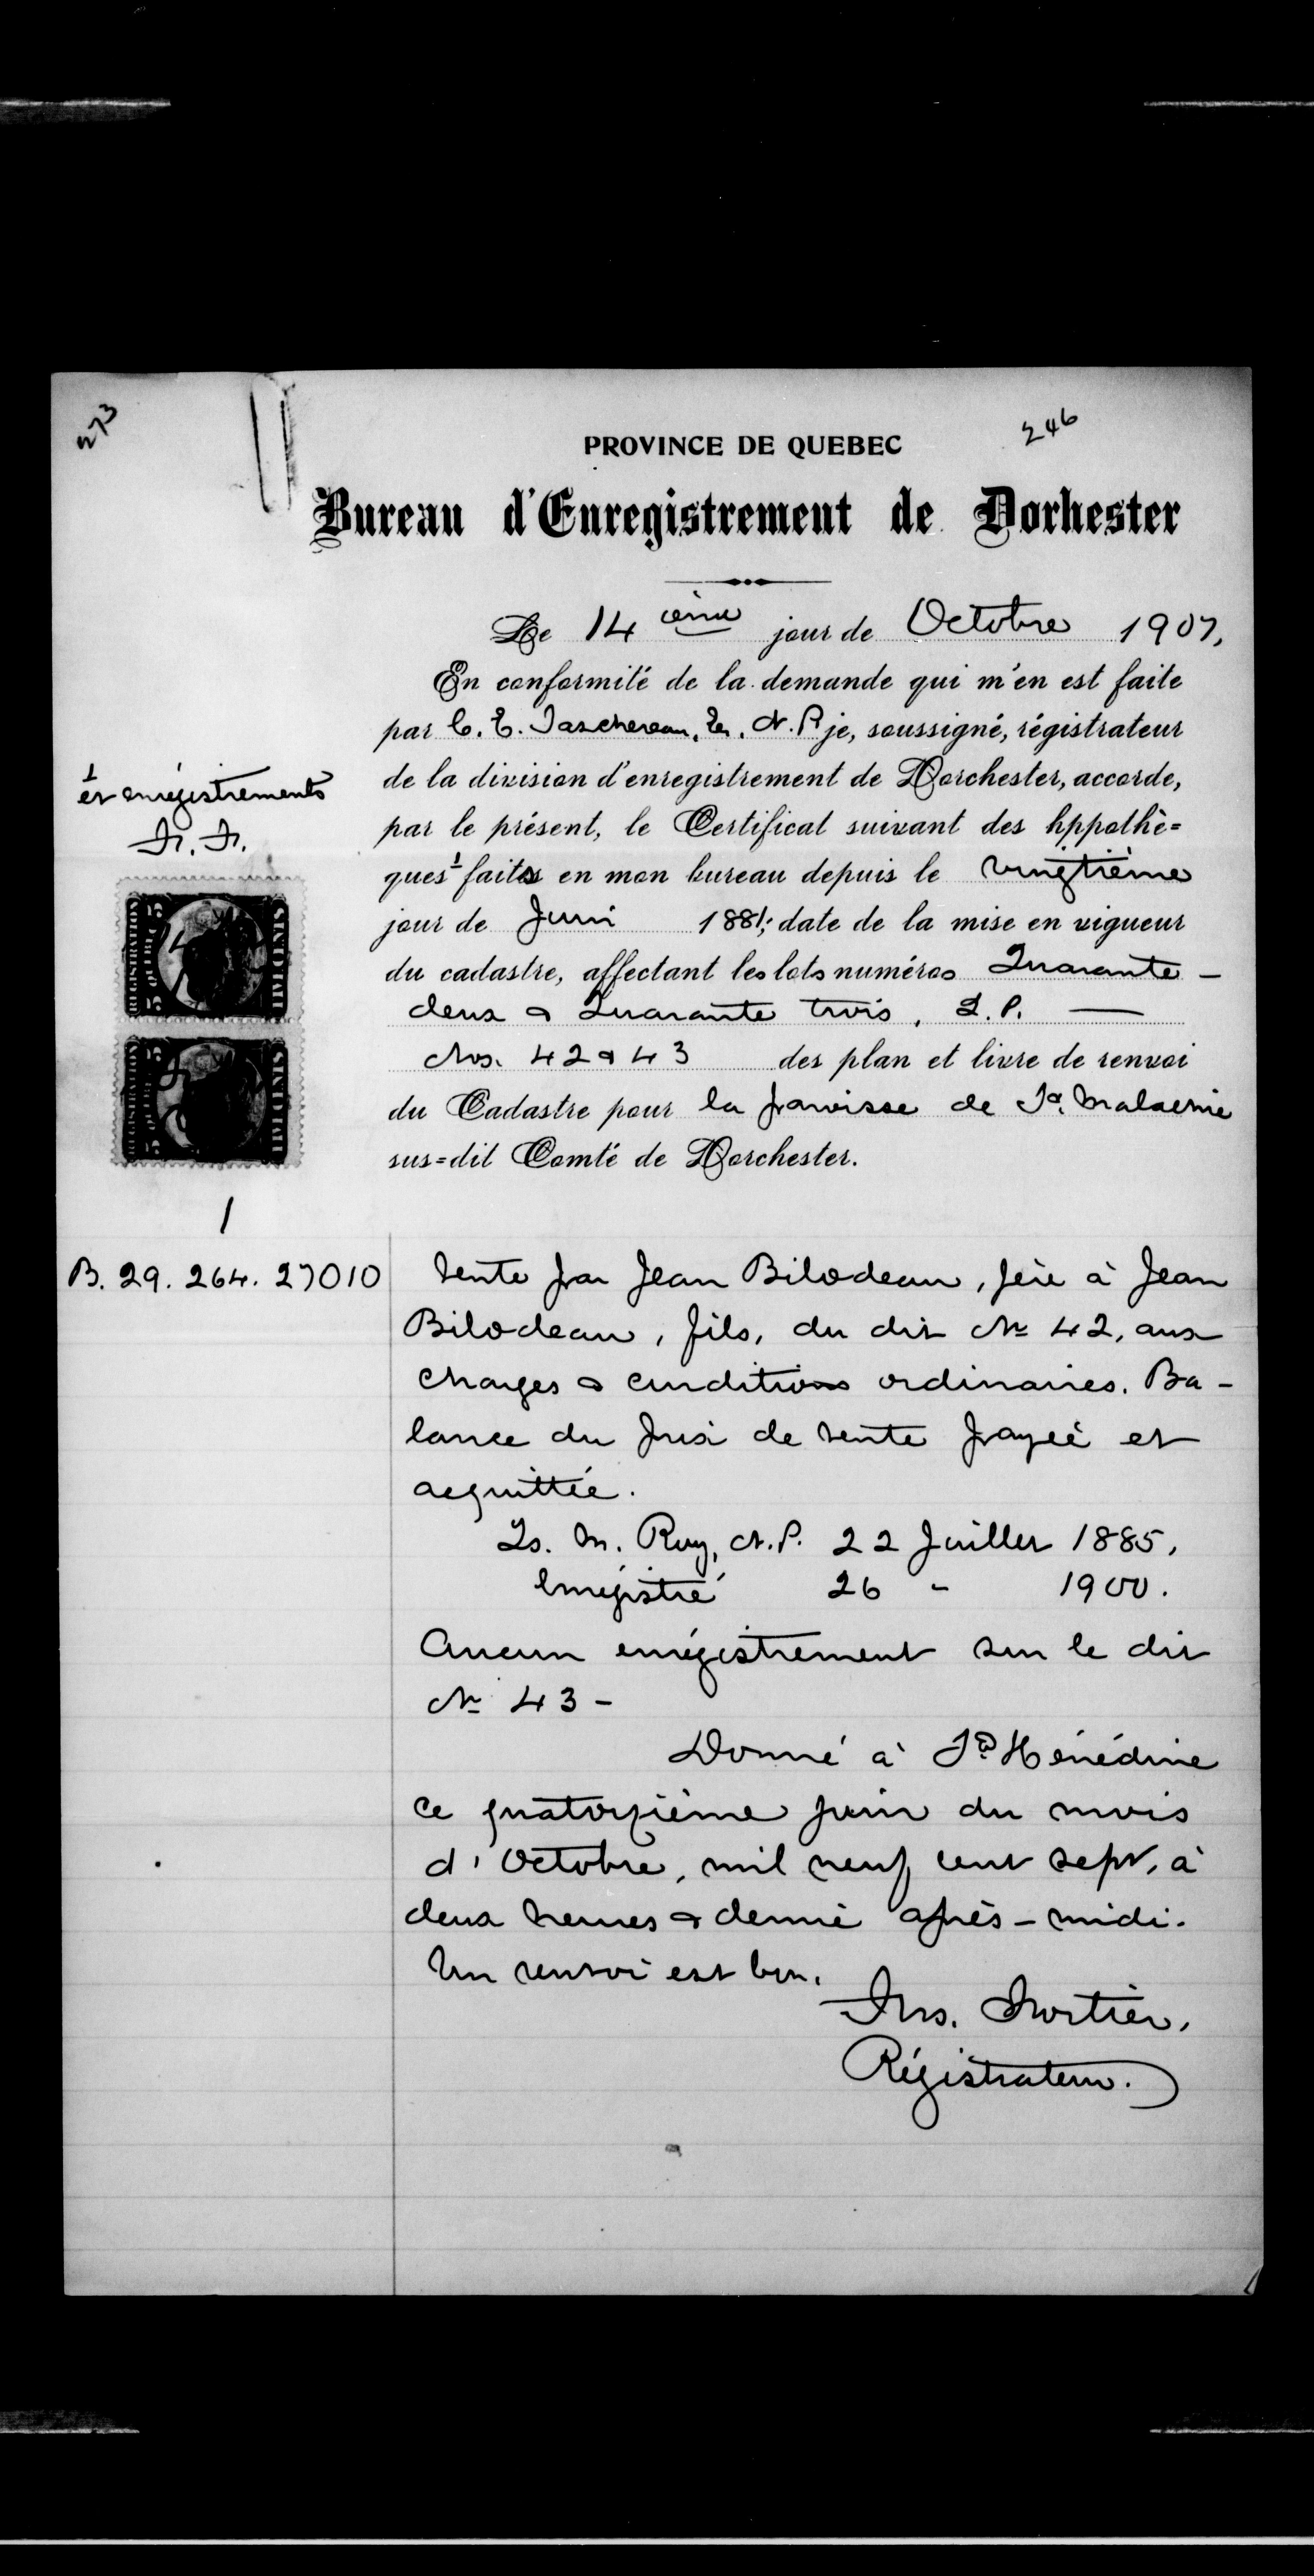 273
246
PROVINCE DE QUEBEC
Bureau d'Enregistrement de Dorhester
Le 14 ième jour de Octobre 1907,
En conformité de la demande qui m'en est faite
par C. E. Taschereau, Er. N. P. je, soussigné, régistrateur
de la division d'enregistrement de Dorchester, accorde,
1
et enrégistrements
Fr. Fr.
par le présent, le Certificat suivant des hppothè=
ques 1 faits en mon bureau depuis le vingtième
jour de Juin 1881; date de la mise en vigueur
du cadastre, affectant les lots numéros Quarante-
deux & Quarante trois, Q. P. —
Nos. 42 & 43 des plan et livre de renvoi
du Cadastre pour la paroisse de Ste. Malachie
sus=dit Comté de Dorchester.
REGISTRATION 5 QUEBEC 5 FIVE CENTS
REGISTRATION 5 QUEBEC 5 FIVE CENTS
1
B. 29. 264. 27010
Vente par Jean Bilodeau, père à Jean
Bilodeau, fils, du dit No 42, aux
charges & conditions ordinaires. Ba-
lance du prix de vente payée et
acquittée.
Ls. M. Roy, N. P. 22 Juillet 1885,
Enrégistré 26 " 1900.
Aucun enrégistrement sur le dit
No 43 -
Donné à Ste Hénédine
ce quatorzième jour du mois
d'Octobre, mil neuf cent sept, à
deux heures & demie après-midi.
Un renvoi est bon.
Frs. Fortier,
Régistrateur.